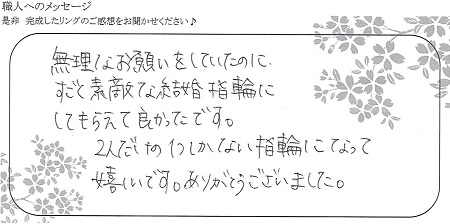 職人へのメッセージ
是非 完成したリングのご感想をお聞かせください♪
無理なお願いをしていたのに、
すごく素敵な結婚指輪に
してもらえて良かったです。
2人だけの1つしかない指輪になって
嬉しいです。ありがとうございました。